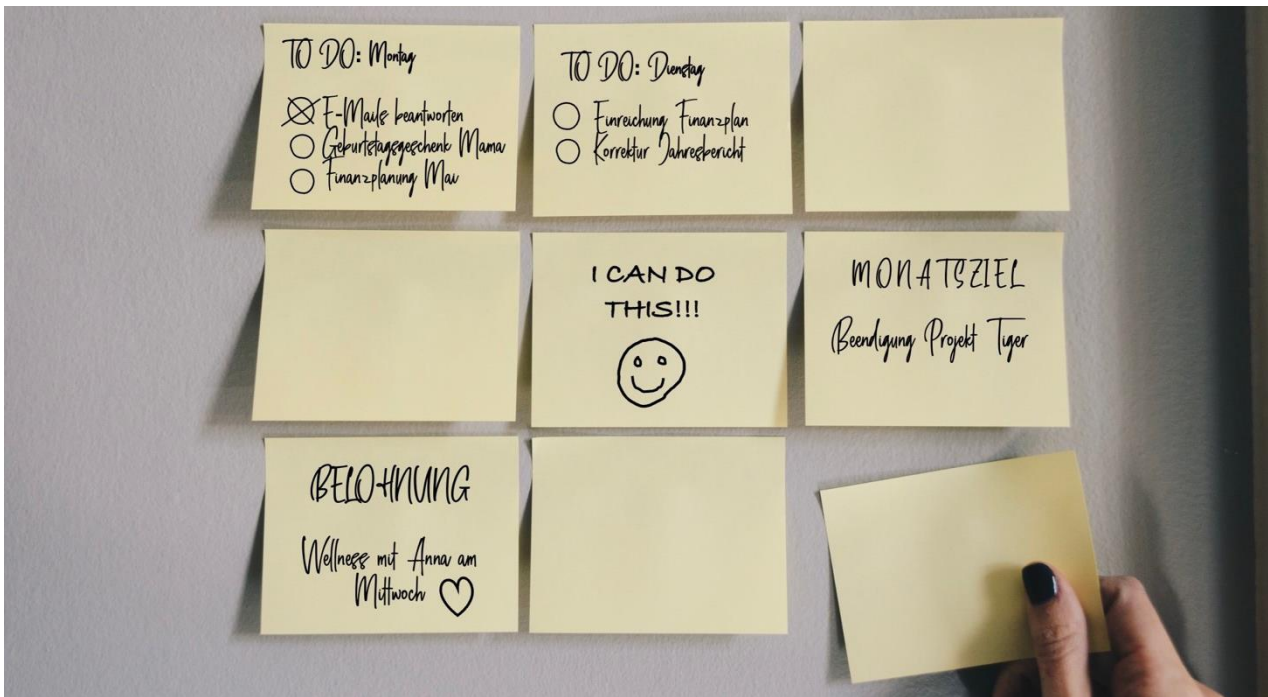 TO DO: Montag
E-Mails beantworten
Geburtstagsgeschenk Mama
Finanzplanung Mai
TO DO: Dienstag
Einreichung Finanzplan
Korrektur Jahresbericht
I CAN DO
THIS!!!
MONATSZIEL
Beendigung Projekt Tiger
BELOHNUNG
Wellness mit Anna am
Mittwoch